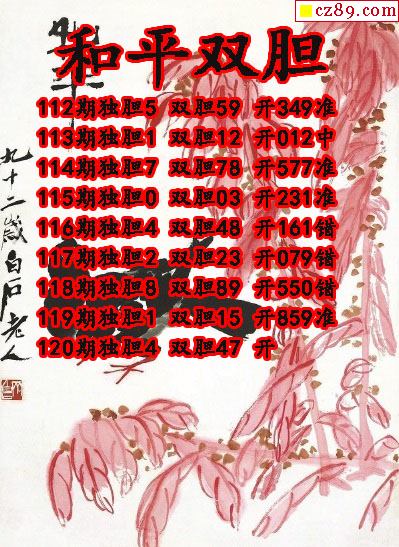 cz89.com
和平双胆
112期独胆5 双胆59 开349准
113期独胆1 双胆12 开012中
114期独胆7 双胆78 开577准
115期独胆0 双胆03 开231准
116期独胆4 双胆48 开161错
117期独胆2 双胆23 开079错
118期独胆8 双胆89 开550错
119期独胆1 双胆15 开859准
120期独胆4 双胆47 开
九十二岁白石老人